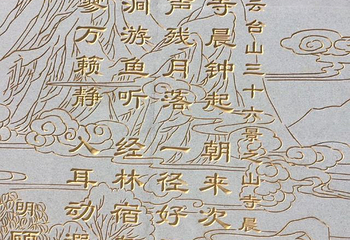 云台山三十六景之山寺晨
寺晨钟起 朝来次
声残月落 一径好
涧游鱼听 经林宿
寥万籁静 入耳动
明 顾